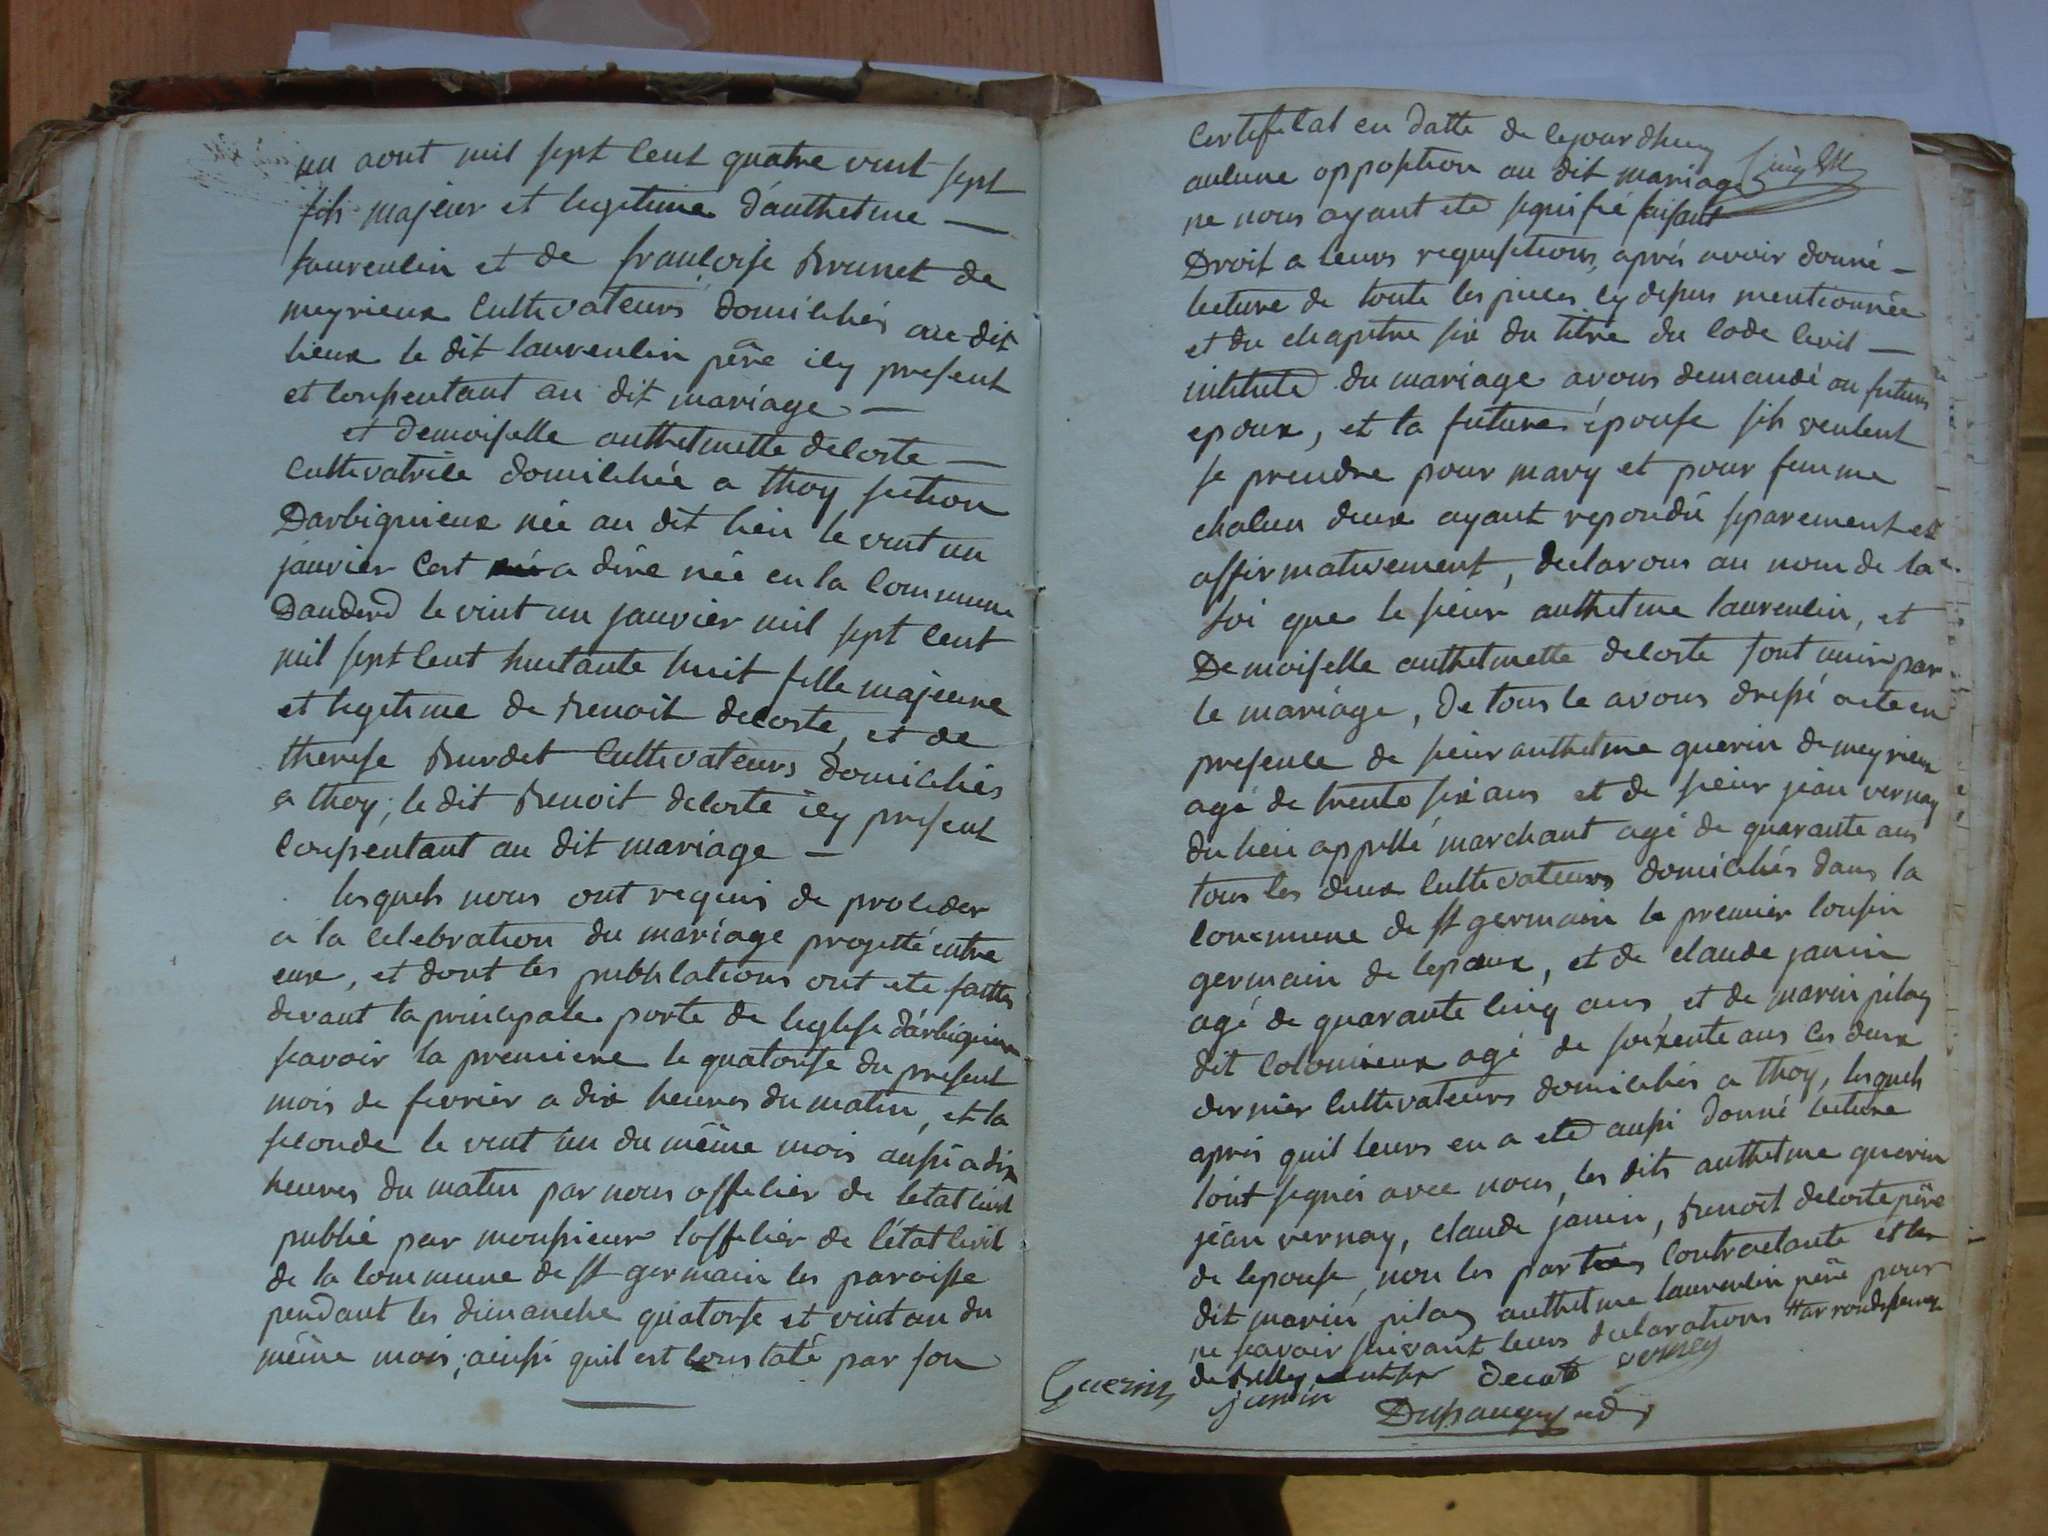 un aout mil sept cent quatre vint sept
fils majeur et legitime d'anthelme —
laurencin et de francoise Brunet de
meyrieux cultivateurs domiciliés au dit
lieux le dit laurencin père icy present
et consentant au dit mariage —
et demoiselle anthelmette decoste —
cultivatrice domiciliée a thoy section
Darbignieux née au dit lieu le vint un
janvier cest a dire née en la commune
Dandert le vint un janvier mil sept cent
mil sept cent huitante huit fille majeure
et legitime de Benoit decoste, et de
therese Burdet cultivateurs domiciliés
a thoy; le dit Benoit decoste icy present
consentant au dit mariage —
lesquels nous ont requis de proceder
a la celebration du mariage projetté entre
eux, et dont les publications ont ete faittes
devant la principale porte de leglise d'arbignieux
scavoir la premiere le quatorse du present
mois de fevrier a dix heures du matin, et la
seconde le vint un du même mois aussi a dix
heures du matin par nous officier de letat civil
publié par monsieur lofficier de l'état civil
de la commune de st germain les paroisse
pendant les dimanche quatorse et vint un du
même mois; ainsi quil est constaté par son
certificat en datte de cejourdhuy
aucune opposition au dit mariage
ne nous ayant ete signifié faisant
Droit a leurs requisitions, après avoir donné —
lecture de toute les pieces cy depus mentionnée
et du chapitre six du titre du code civil —
intitulé du mariage avons demandé au futurs
epoux, et la future épouse sils veulent
se prendre pour mary et pour femme
chacun deux ayant repondu separement et
affirmativement, declarons au nom de la
loi que le sieur anthelme laurencin, et
Demoiselle anthelmette decoste sont unis par
le mariage, De tous ce avons dressé acte en
presence de sieur anthelme guerin de meyrieux
agé de trente six ans et de sieur jean vernay
du lieu appellé marchant agé de quarante ans
tous les deux cultivateurs domiciliés dans la
commune de st germain le premier cousin
germain de lepoux, et de claude janin
agé de quarante cinq ans, et de marin pilaz
dit colomieux agé de soixente ans les deux
dernier cultivateurs domiciliés a thoy, lesquels
après quil leurs en a eté aussi donné lecture
tont signés avec nous, les dits anthelme guerin
jean vernay, claude janin, Benoit decoste père
de lepouse, non les parties contractante et les
dit marin pilaz anthelme laurencin père pour
ne scavoir suivant leurs declarations # arrondissement
de Belley decot vernay
Guerin janin